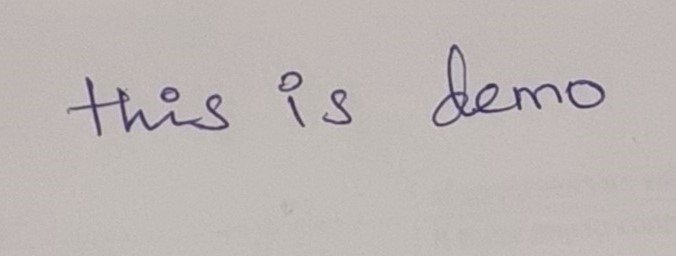 this is demo